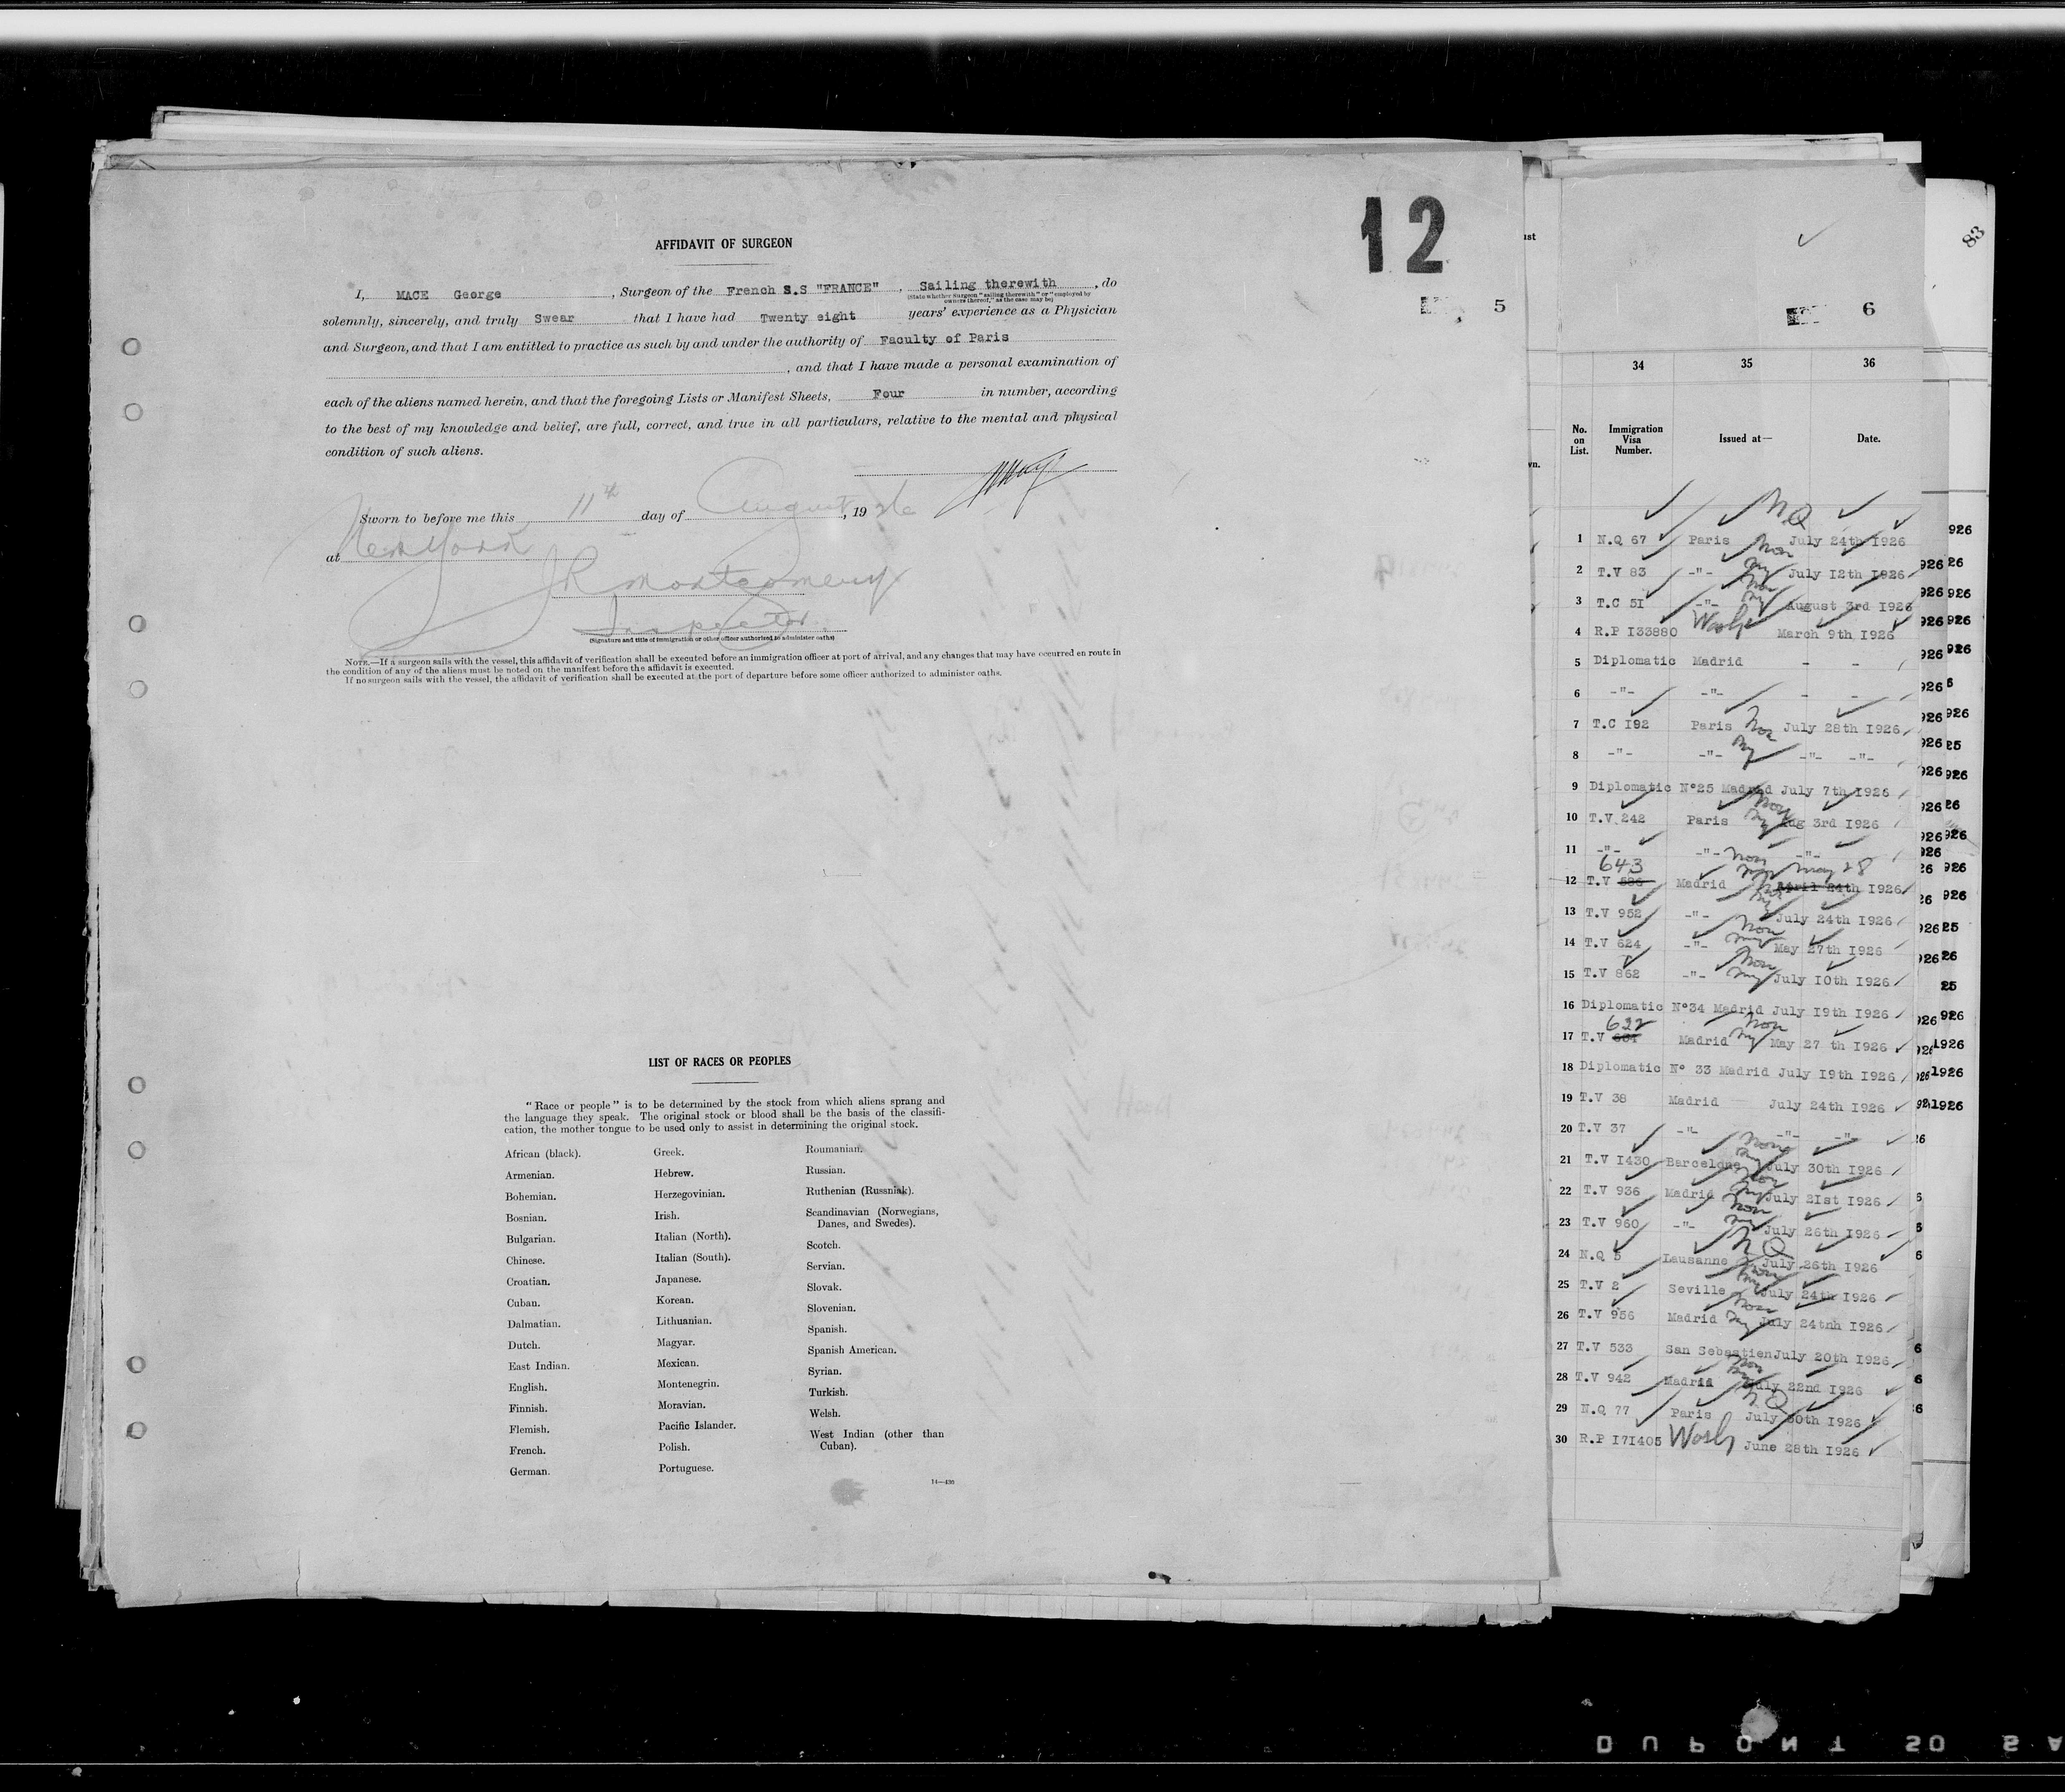 12
5
AFFIDAVIT OF SURGEON
I, MACE George, Surgeon of the French S.S "FRANCE", Sailing therewith, do
(State whether Surgeon "sailing therewith" or "employed by
owners thereof," as the case may be)
solemnly, sincerely, and truly Swear that I have had Twenty eight years' experience as a Physician
and Surgeon, and that I am entitled to practice as such by and under the authority of Faculty of Paris
, and that I have made a personal examination of
each of the aliens named herein, and that the foregoing Lists or Manifest Sheets, Four in number, according
to the best of my knowledge and belief, are full, correct, and true in all particulars, relative to the mental and physical
condition of such aliens.
Sworn to before me this 11th day of August, 1926
at New York
JR Montgomery
Inspector.
(Signature and title of immigration or other officer authorized to administer oaths)
NOTE.—If a surgeon sails with the vessel, this affidavit of verification shall be executed before an immigration officer at port of arrival, and any changes that may have occurred en route in
the condition of any of the aliens must be noted on the manifest before the affidavit is executed.
If no surgeon sails with the vessel, the affidavit of verification shall be executed at the port of departure before some officer authorized to administer oaths.
LIST OF RACES OR PEOPLES
"Race or people" is to be determined by the stock from which aliens sprang and
the language they speak. The original stock or blood shall be the basis of the classifi-
cation, the mother tongue to be used only to assist in determining the original stock.
African (black).
Armenian.
Bohemian.
Bosnian.
Bulgarian.
Chinese.
Croatian.
Cuban.
Dalmatian.
Dutch.
East Indian.
English.
Finnish.
Flemish.
French.
German.
Greek.
Hebrew.
Herzegovinian.
Irish.
Italian (North).
Italian (South).
Japanese.
Korean.
Lithuanian.
Magyar.
Mexican.
Montenegrin.
Moravian.
Pacific Islander.
Polish.
Portuguese.
Roumanian.
Russian.
Ruthenian (Russniak).
Scandinavian (Norwegians,
Danes, and Swedes).
Scotch.
Servian.
Slovak.
Slovenian.
Spanish.
Spanish American.
Syrian.
Turkish.
Welsh.
West Indian (other than
Cuban).
14—436
83
6
34 35 36
No. on List. Immigration Visa Number. Issued at— Date.
N.Q
1 N.Q 67 Paris July 24th 1926
2 T.V 83 -"- July 12th 1926
3 T.C 51 -"- August 3rd 1926
4 R.P 133880 Wash March 9th 1926
5 Diplomatic Madrid - -
6 -"- -"- - -
7 T.C 192 Paris July 28th 1926
8 -"- -"- -"- -"-
9 Diplomatic N°25 Madrid July 7th 1926
10 T.V 242 Paris Aug 3rd 1926
11 -"- -"- -"-
643 May 28
12 T.V Madrid April 24th 1926
13 T.V 952 -"- July 24th 1926
14 T.V 624 -"- May 27th 1926
15 T.V 862 -"- July 10th 1926
16 Diplomatic N°34 Madrid July 19th 1926
622
17 T.V Madrid May 27 th 1926
18 Diplomatic N° 33 Madrid July 19th 1926
19 T.V 38 Madrid July 24th 1926
20 T.V 37 -"- -"- -"-
21 T.V 1430 Barcelone July 30th 1926
22 T.V 936 Madrid July 21st 1926
23 T.V 960 -"- July 26th 1926
24 N.Q 5 Lausanne N Q July 26th 1926
25 T.V 2 Seville July 24th 1926
26 T.V 956 Madrid July 24tnh 1926
27 T.V 533 San Sebastien July 20th 1926
28 T.V 942 Madrid July 22nd 1926
29 N.Q 77 Paris N.Q July 30th 1926
30 R.P 171405 Wash June 28th 1926
DUPONT SO SA